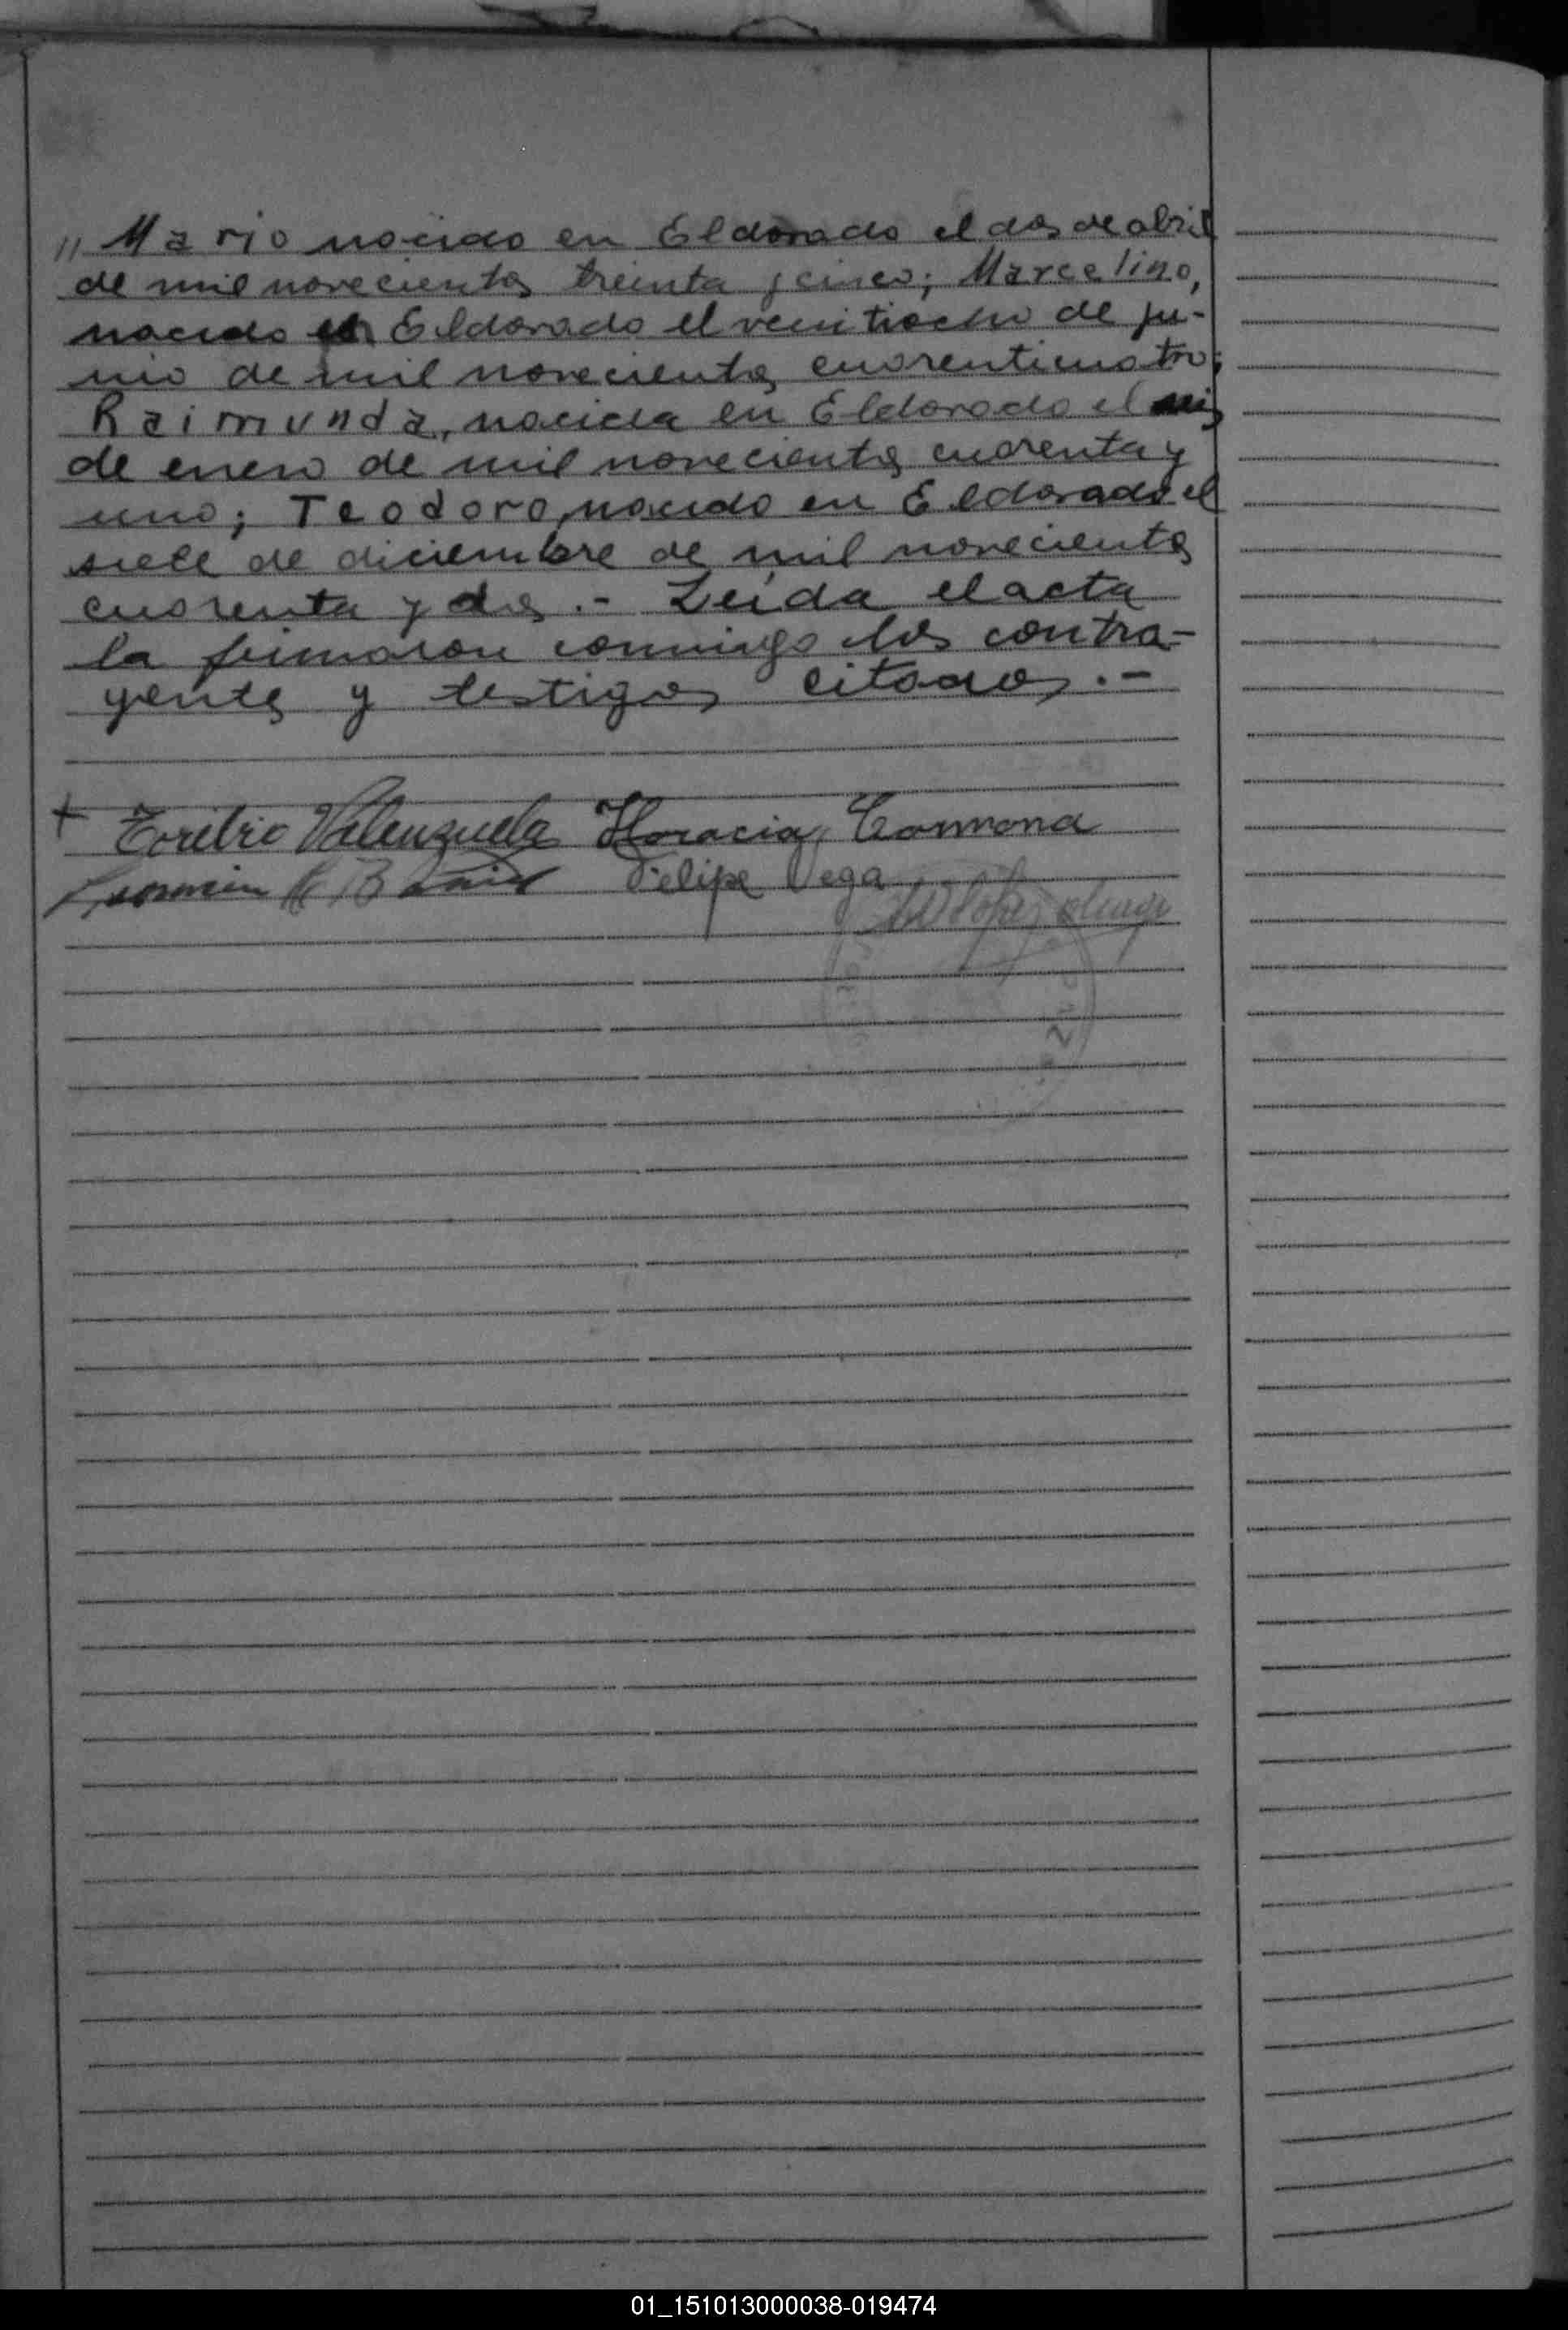 " Mario nacido en Eldorado el dos de abril
de mil novecientos treinta y cinco; Marcelino,
nacido en Eldorado el veintiocho de ju-
nio de mil novecientos cuarenticuatro;
Raimunda, nacida en Eldorado el seis
de enero de mil novecientos cuarenta y
uno; Teodoro, nacido en Eldorado el
siete de diciembre de mil novecientos
cuarenta y dos .- Leída el acta
la firmaron conmigo los contra-
yentes y testigos citados .-
+ Toribio Valenzuela Horacia Carmona
Felipe Vega
01_151013000038-019474